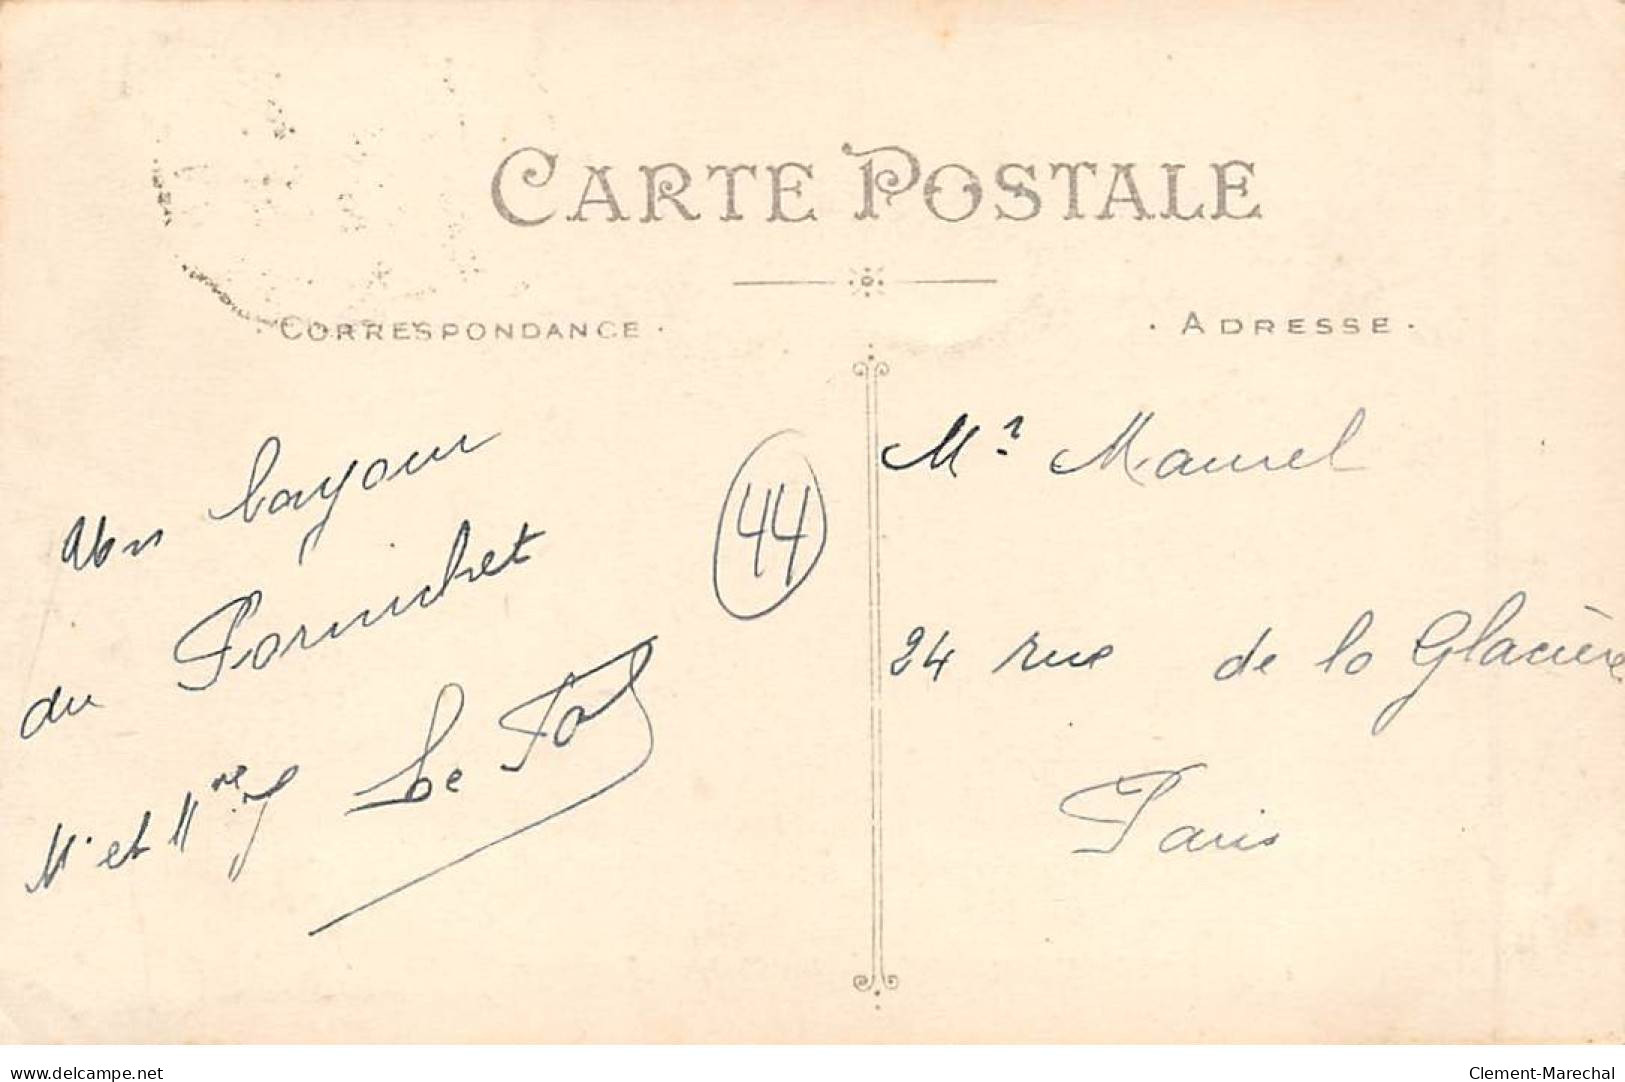 CARTE POSTALE
· CORRESPONDANCE ·
· ADRESSE ·
un bonjour
du Pornichet
M. et Mme Le Fol
44
Mr Maurel
24 rue de la Glacière
Paris
delcampe.net
Clement-Marechal